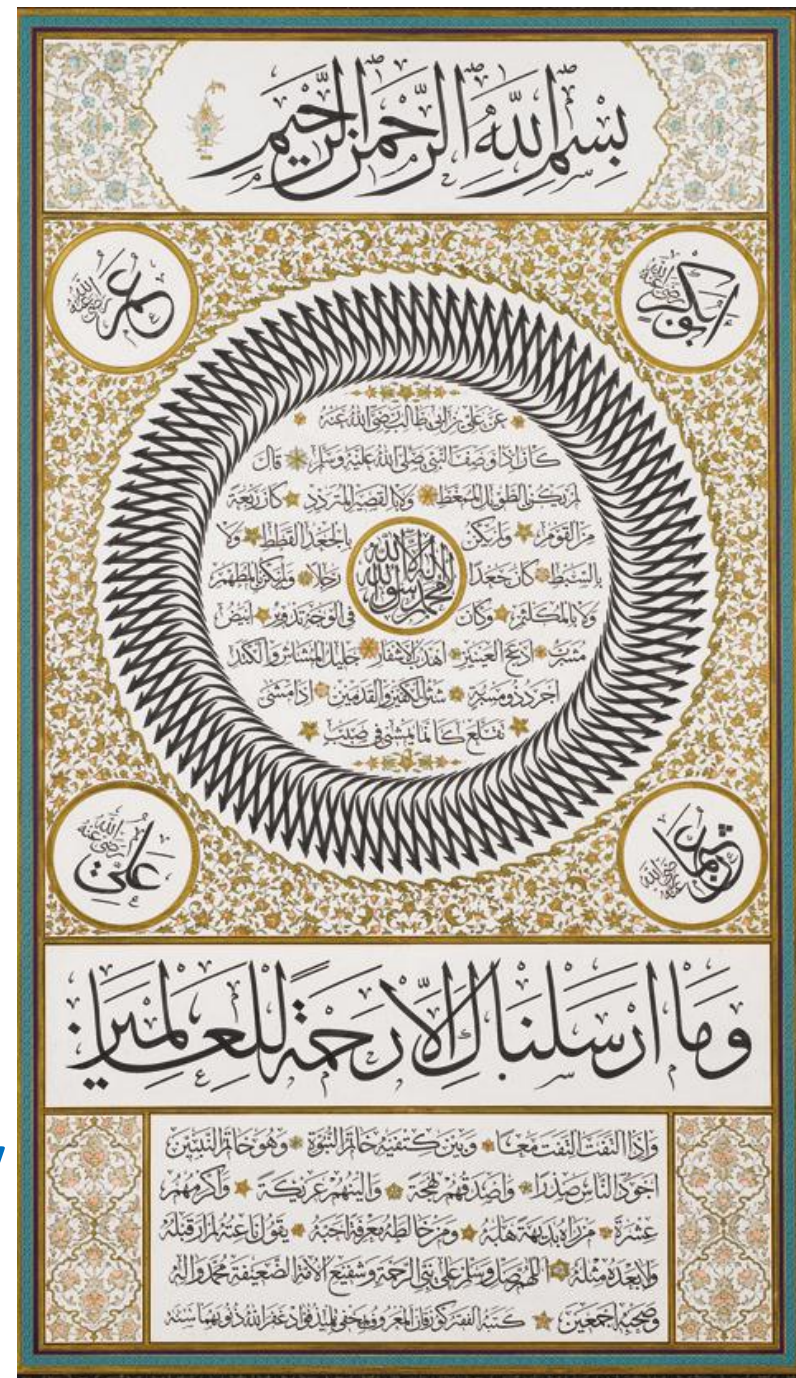 بِسْمِ اللهِ الرَّحْمٰنِ الرَّحِيمِ
ابو بكر رضى الله عنه
عمر رضى الله عنه
عن على بن ابى طالب رضى الله عنه
كان اذا وصف النبى صلى الله عليه وسلم قال
لم يكن بالطويل الممغط ولا بالقصير المتردد كان ربعة
من القوم ولم يكن بالجعد القطط ولا
بالسبط كان جعدا رجلا ولم يكن بالمطهم
ولا بالمكلثم وكان فى الوجه تدوير ابيض
مشرب ادعج العينين اهدب الاشفار جليل المشاش والكتد
اجرد ذو مسربة شثن الكفين والقدمين اذا مشى
تقلع كانما يمشى فى صبب
لا اله الا الله
محمد رسول الله
عثمان رضى الله عنه
على رضى الله عنه
وما ارسلناك الا رحمة للعالمين
واذا التفت التفت معا وبين كتفيه خاتم النبوة وهو خاتم النبيين
اجود الناس صدرا واصدقهم لهجة والينهم عريكة واكرمهم
عشرة من راه بديهة هابه ومن خالطه معرفة احبه يقول ناعته لم ار قبله
ولا بعده مثله اللهم صل وسلم على نبى الرحمة وشفيع الامة الضعيفة محمد واله
وصحبه اجمعين كتبه الفقير المعروف فؤاد غفر الله ذنوبهما سنة